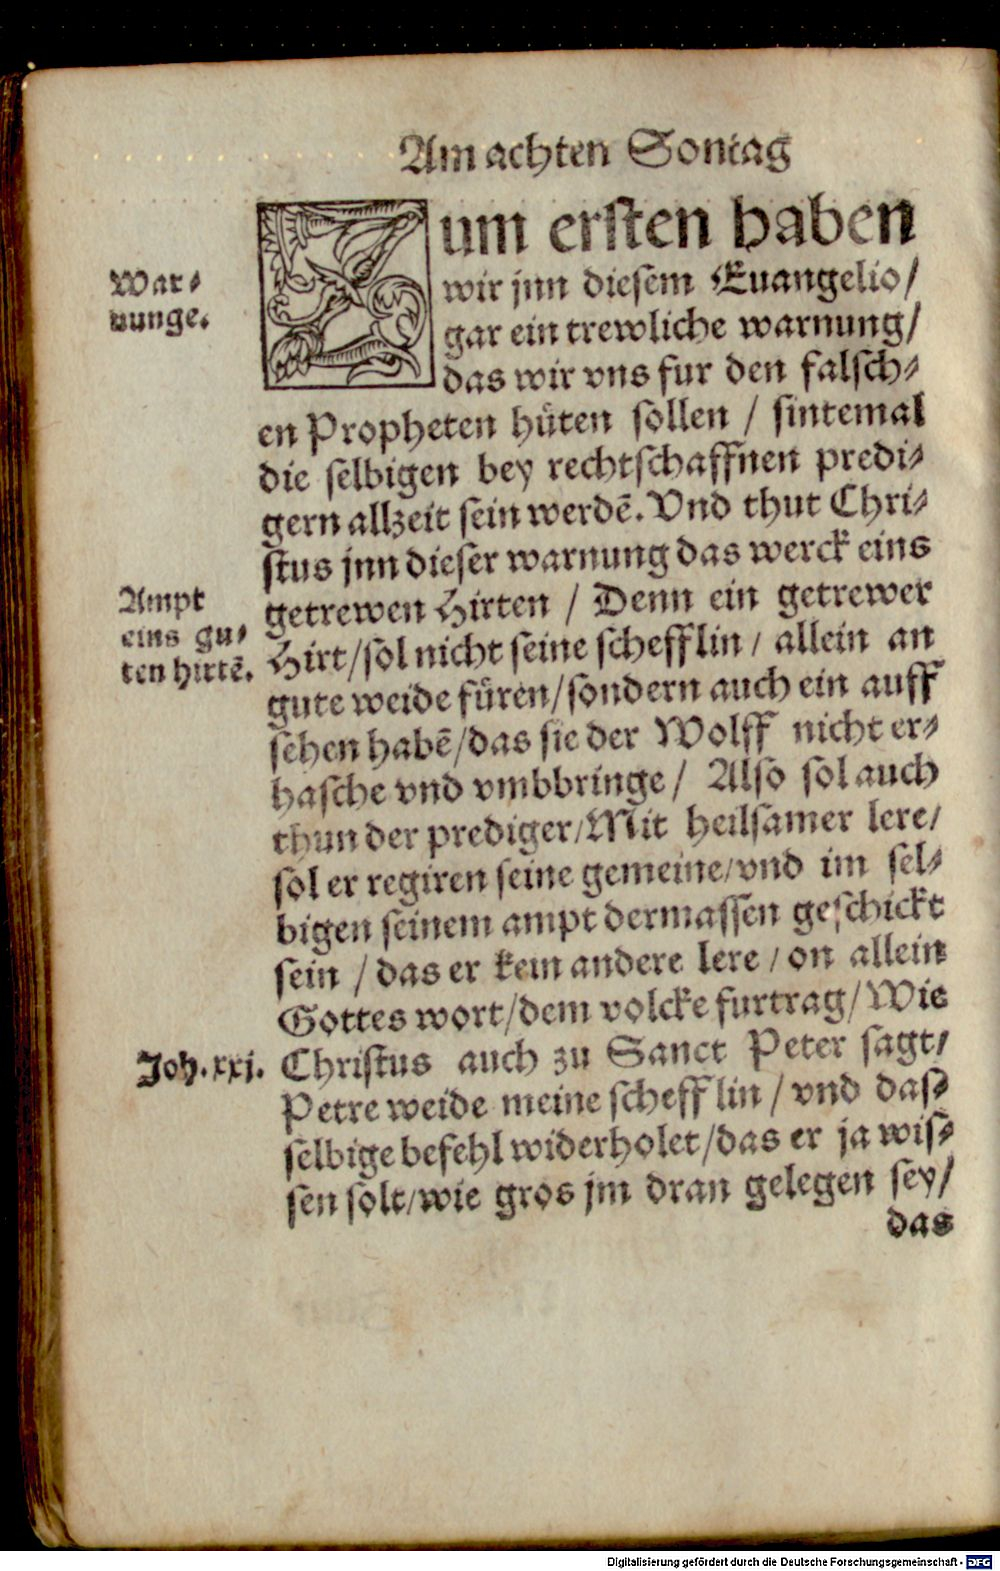 Am achten Sontag
Zum ersten haben
wir jnn diesem Euangelio/
gar ein trewliche warnung/
das wir vns fur den falsch-
en Propheten hüten sollen / sintemal
die selbigen bey rechtschaffnen predi-
gern allzeit sein werdē. Vnd thut Chri-
stus jnn dieser warnung das werck eins
getrewen Hirten / Denn ein getrewer
Hirt/sol nicht seine schefflin / allein an
gute weide füren/sondern auch ein auff
sehen habē/das sie der Wolff nicht er-
hasche vnd vmbbringe / Also sol auch
thun der prediger/Mit heilsamer lere/
sol er regiren seine gemeine/vnd im sel-
bigen seinem ampt dermassen geschickt
sein / das er kein andere lere / on allein
Gottes wort/dem volcke furtrag/Wie
Christus auch zu Sanct Peter sagt/
Petre weide meine schefflin / vnd das-
selbige befehl widerholet/das er ja wis-
sen solt/wie gros jm dran gelegen sey/
das
War-
nunge.
Ampt
eins gu-
ten hirtē.
Joh. xxj.
Digitalisierung gefördert durch die Deutsche Forschungsgemeinschaft - DFG